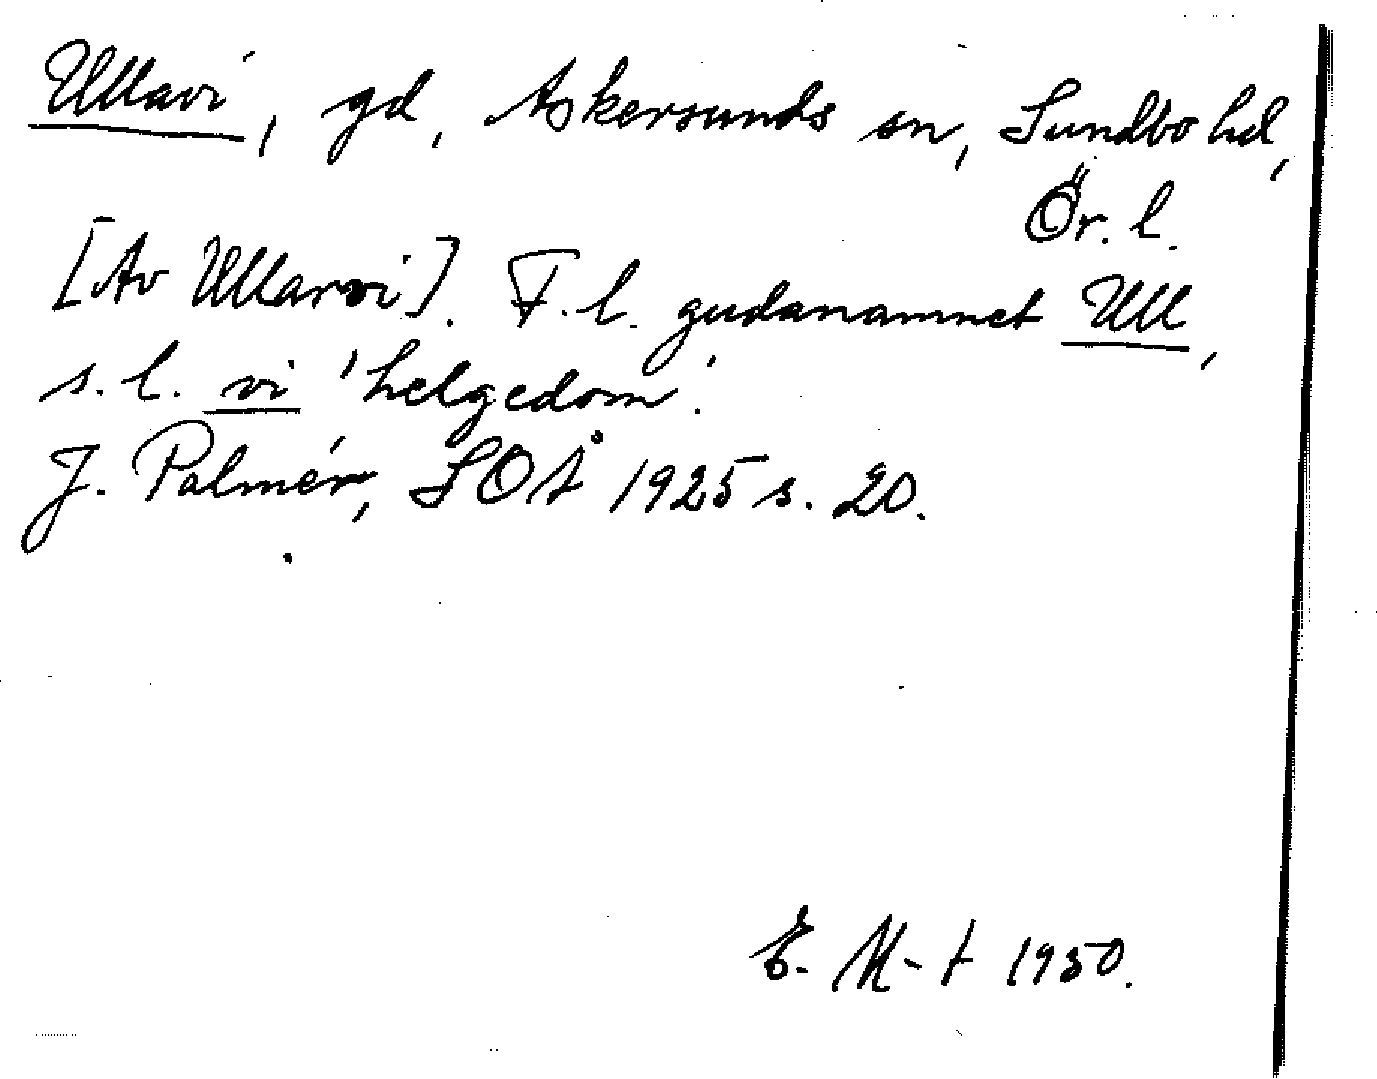 Ullavi, gd, Askersunds sn, Sundbo hd,
Ör. l.
[Av Ullarvi]. F.l. gudanamnet Ull,
s.l. vi 'helgedom'.
J. Palmér, SOÅ 1925 s. 20.
E. M-t 1950.